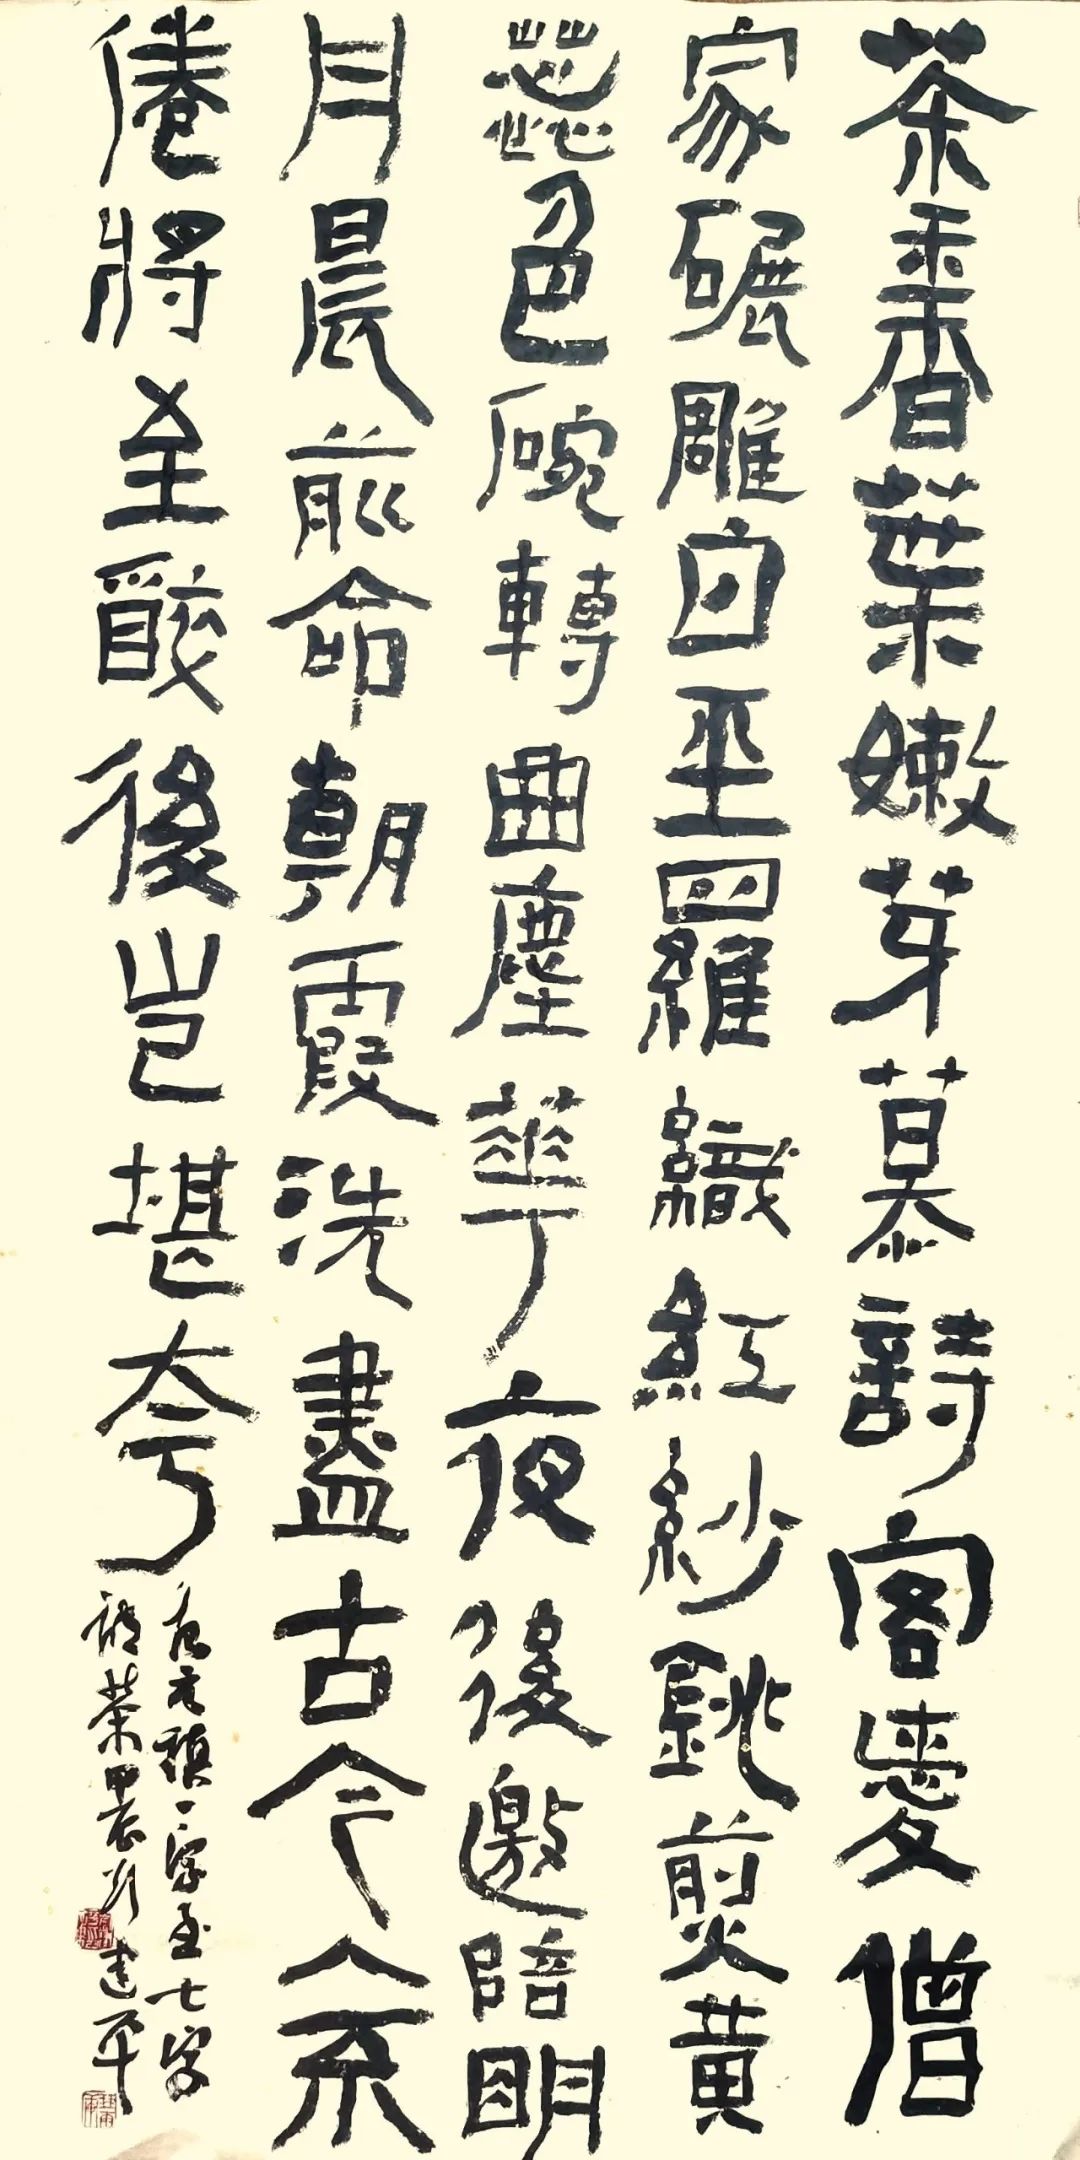 茶香葉嫩芽慕詩客愛僧
家碾雕白玉羅織紅紗銚煎黃
蕊色碗轉曲塵華夜後邀陪明
月晨前命朝霞洗盡古今人不
倦將至醉後豈堪夸
唐元稹一字至七字
詩茶甲辰 建平